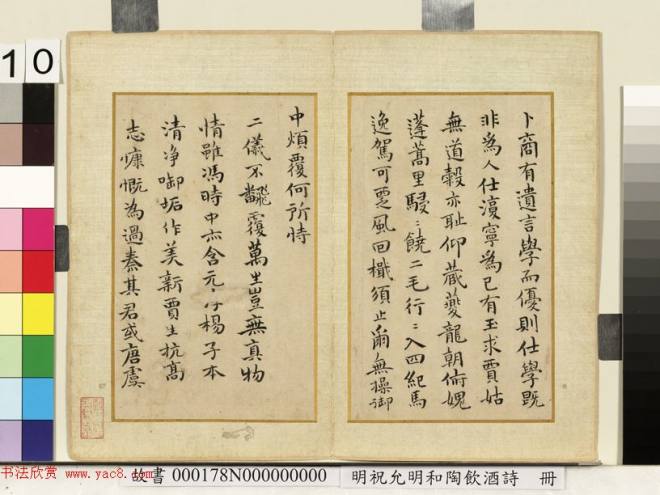 卜商有遺言學而優則仕學既
非為人仕復寧為已有玉求賈姑
無道穀亦恥仰蔵夔龍朝俯媿
蓬蒿里駸〻饒二毛行〻入四紀馬
逸駕可更風回檥須止爾無操御
中煩覆何所恃
二儀不飜覆萬生豈無真物
情雖馮時中亦含元〻浮楊子本
清净啣垢作美新賈生抗高
志慷慨為過秦其君或唐虞
10
书法欣赏 www.yac8.com
故書 000178N000000000 明祝允明和陶飲酒詩 冊